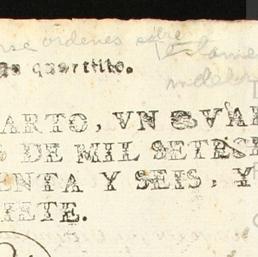 ordenes sobre
un quartillo.
ARTO, VN QVAR
DE MIL SETECI
ENTA Y SEIS, Y
SIETE.